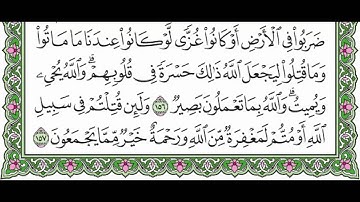 ضَرَبُوا۟ فِى ٱلْأَرْضِ أَوْ كَانُوا۟ غُزًّى لَّوْ كَانُوا۟ عِندَنَا مَا مَاتُوا۟
وَمَا قُتِلُوا۟ لِيَجْعَلَ ٱللَّهُ ذَٰلِكَ حَسْرَةً فِى قُلُوبِهِمْ ۗ وَٱللَّهُ يُحْىِۦ
وَيُمِيتُ ۗ وَٱللَّهُ بِمَا تَعْمَلُونَ بَصِيرٌ ١٥٦ وَلَئِن قُتِلْتُمْ فِى سَبِيلِ
ٱللَّهِ أَوْ مُتُّمْ لَمَغْفِرَةٌ مِّنَ ٱللَّهِ وَرَحْمَةٌ خَيْرٌ مِّمَّا يَجْمَعُونَ ١٥٧